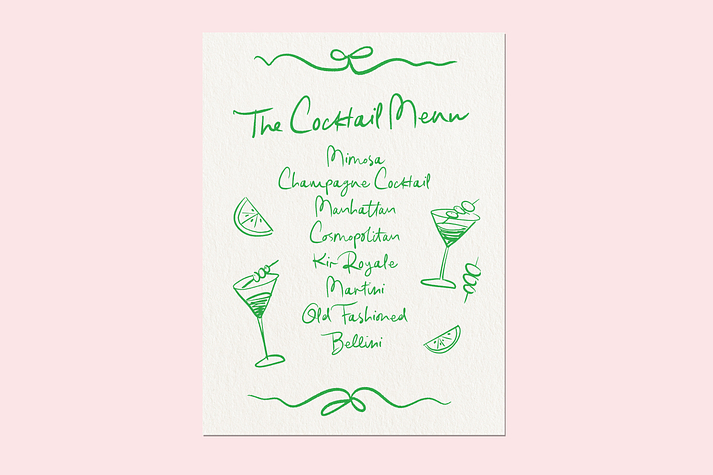 The Cocktail Menu
Mimosa
Champagne Cocktail
Manhattan
Cosmopolitan
Kir Royale
Martini
Old Fashioned
Bellini